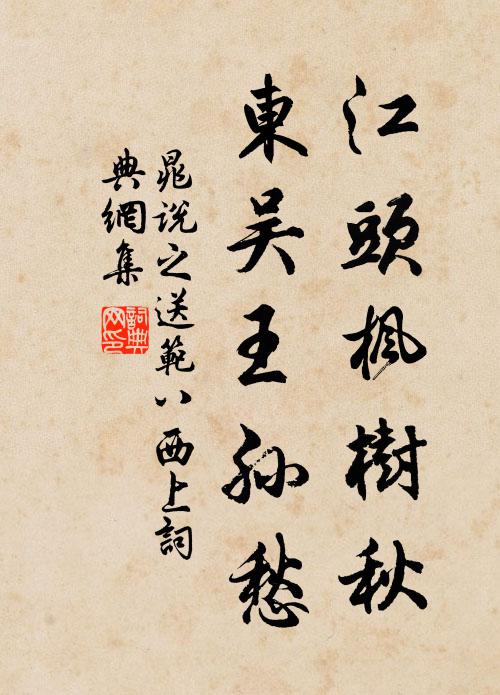 江頭楓樹秋
東吳王孫愁
晁說之送範八西上詞
典網集
詞典网印